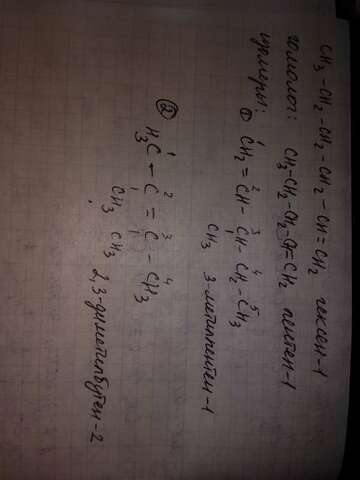 CH3 - CH2 - CH2 - CH2 - CH = CH2 гексен-1
гомолог: CH3-CH2-CH2-CH=CH2 пентен-1
изомеры: ① 1 2 3 4 5
CH2 = CH - CH - CH2 - CH3
CH3 3-метилпентен-1
② 1 2 3 4
H3C - C = C - CH3
CH3 CH3 2,3-диметилбутен-2